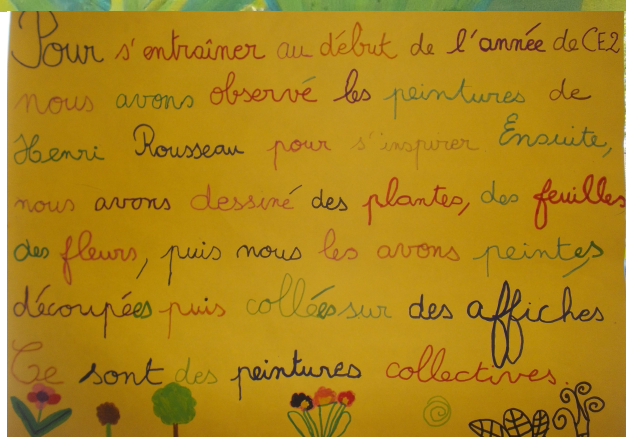 Pour s'entraîner au début de l'année de CE2
nous avons observé les peintures de
Henri Rousseau pour s'inspirer. Ensuite,
nous avons dessiné des plantes, des feuilles
des fleurs, puis nous les avons peintes,
découpées puis collées sur des affiches
Ce sont des peintures collectives.